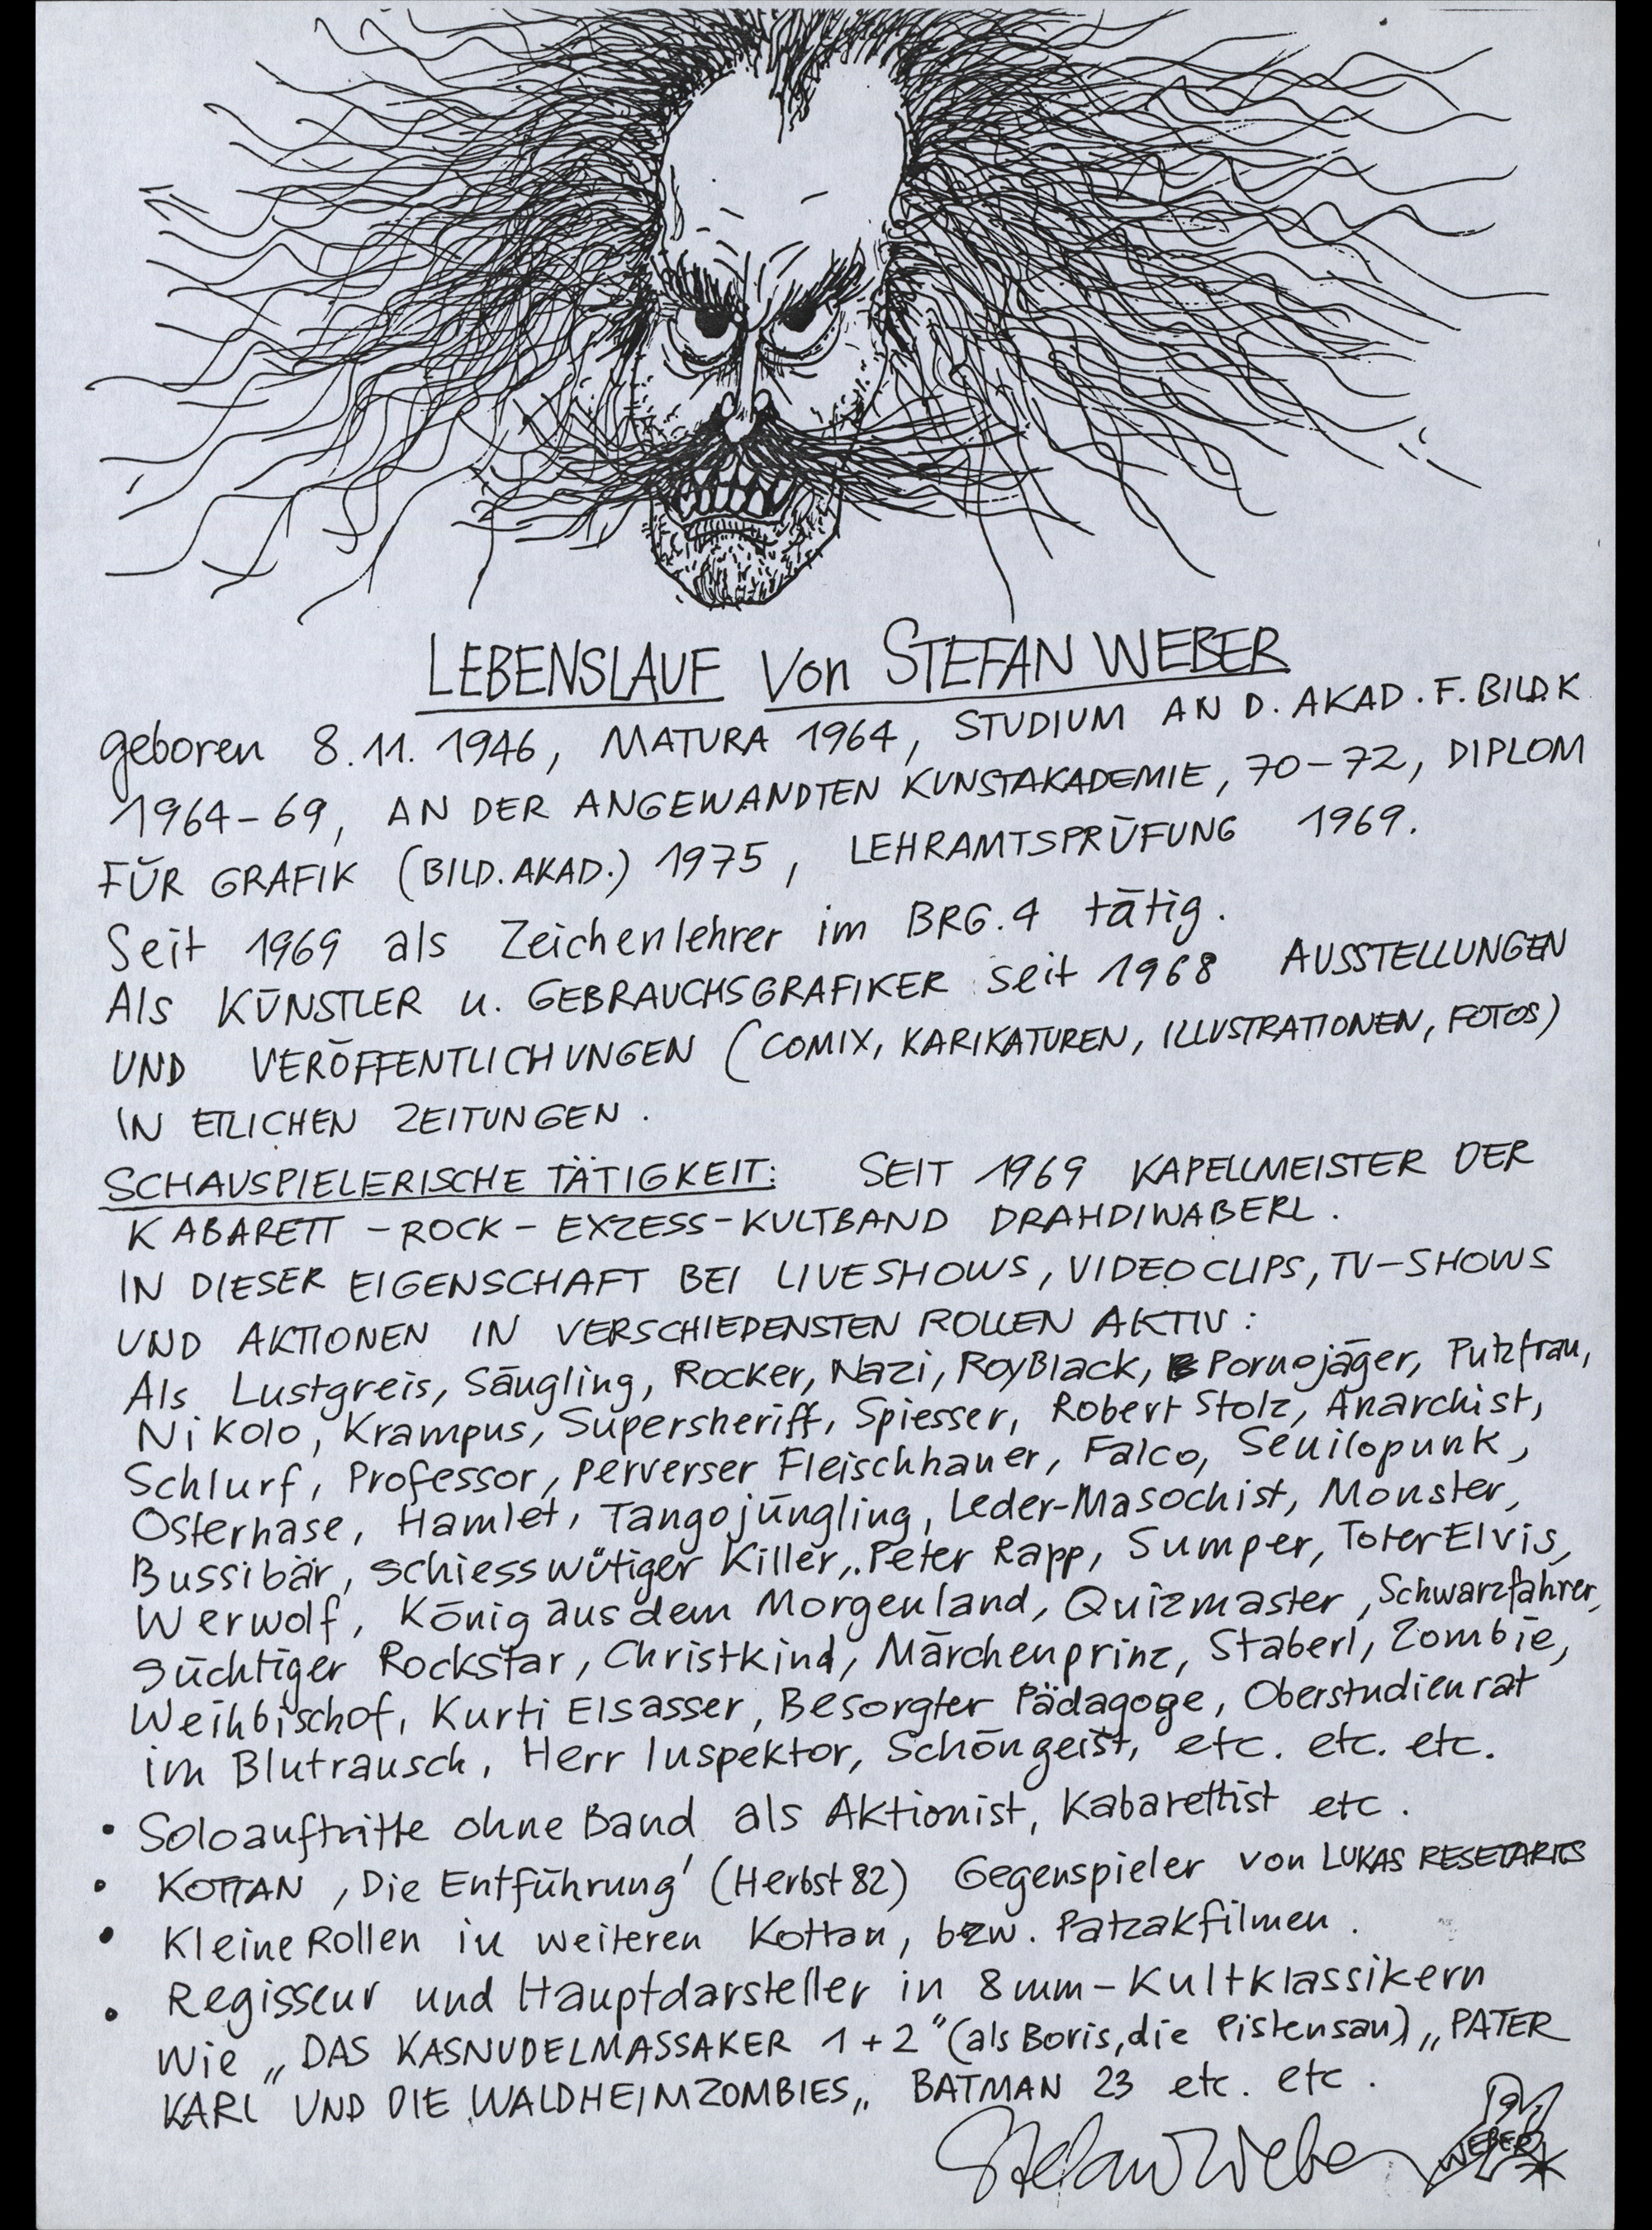 LEBENSLAUF von STEFAN WEBER
geboren 8.11.1946, MATURA 1964, STUDIUM AN D. AKAD. F. BILD.K
1964-69, AN DER ANGEWANDTEN KUNSTAKADEMIE, 70-72, DIPLOM
FÜR GRAFIK (BILD.AKAD.) 1975, LEHRAMTSPRÜFUNG 1969.
Seit 1969 als Zeichenlehrer im BRG.4 tätig.
Als KÜNSTLER u. GEBRAUCHSGRAFIKER seit 1968 AUSSTELLUNGEN
UND VERÖFFENTLICHUNGEN (COMIX, KARIKATUREN, ILLUSTRATIONEN, FOTOS)
IN ETLICHEN ZEITUNGEN.
SCHAUSPIELERISCHE TÄTIGKEIT: SEIT 1969 KAPELLMEISTER DER
KABARETT-ROCK-EXZESS-KULTBAND DRAHDIWABERL.
IN DIESER EIGENSCHAFT BEI LIVESHOWS, VIDEOCLIPS, TV-SHOWS
UND AKTIONEN IN VERSCHIEDENSTEN ROLLEN AKTIV:
Als Lustgreis, Säugling, Rocker, Nazi, Roy Black, Pornojäger, Putzfrau,
Nikolo, Krampus, Supersheriff, Spiesser, Robert Stolz, Anarchist,
Schlurf, Professor, perverser Fleischhauer, Falco, Senilopunk,
Osterhase, Hamlet, Tangojüngling, Leder-Masochist, Monster,
Bussibär, schiesswütiger Killer, Peter Rapp, Sumper, Toter Elvis,
Werwolf, König aus dem Morgenland, Quizmaster, Schwarzfahrer,
süchtiger Rockstar, Christkind, Märchenprinz, Staberl, Zombie,
Weihbischof, Kurti Elsasser, Besorgter Pädagoge, Oberstudienrat
im Blutrausch, Herr Inspektor, Schöngeist, etc. etc. etc.
• Soloauftritte ohne Band als Aktionist, Kabarettist etc.
• KOTTAN ,Die Entführung' (Herbst 82) Gegenspieler von LUKAS RESETARITS
• Kleine Rollen in weiteren Kottan, bzw. Patzakfilmen.
• Regisseur und Hauptdarsteller in 8mm-Kultklassikern
Wie „DAS KASNUDELMASSAKER 1+2" (als Boris, die Pistensau) „PATER
KARL UND DIE WALDHEIMZOMBIES„ BATMAN 23 etc. etc.
Stefan Weber WEBER